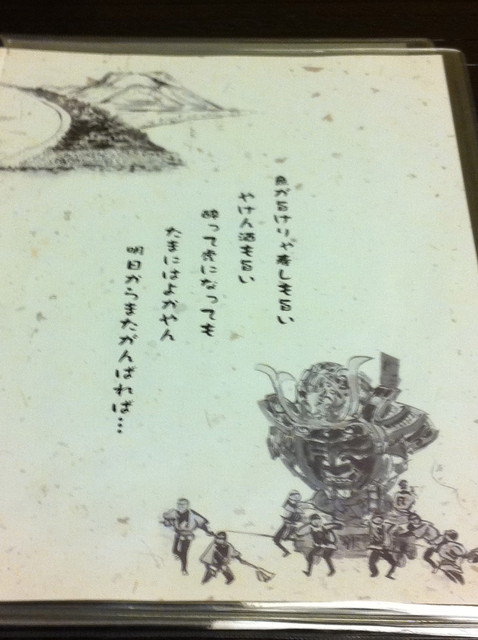 魚が旨けりゃ寿しも旨い
やけん酒も旨い
酔って虎になっても
たまにはよかやん
明日からまたがんばれば…